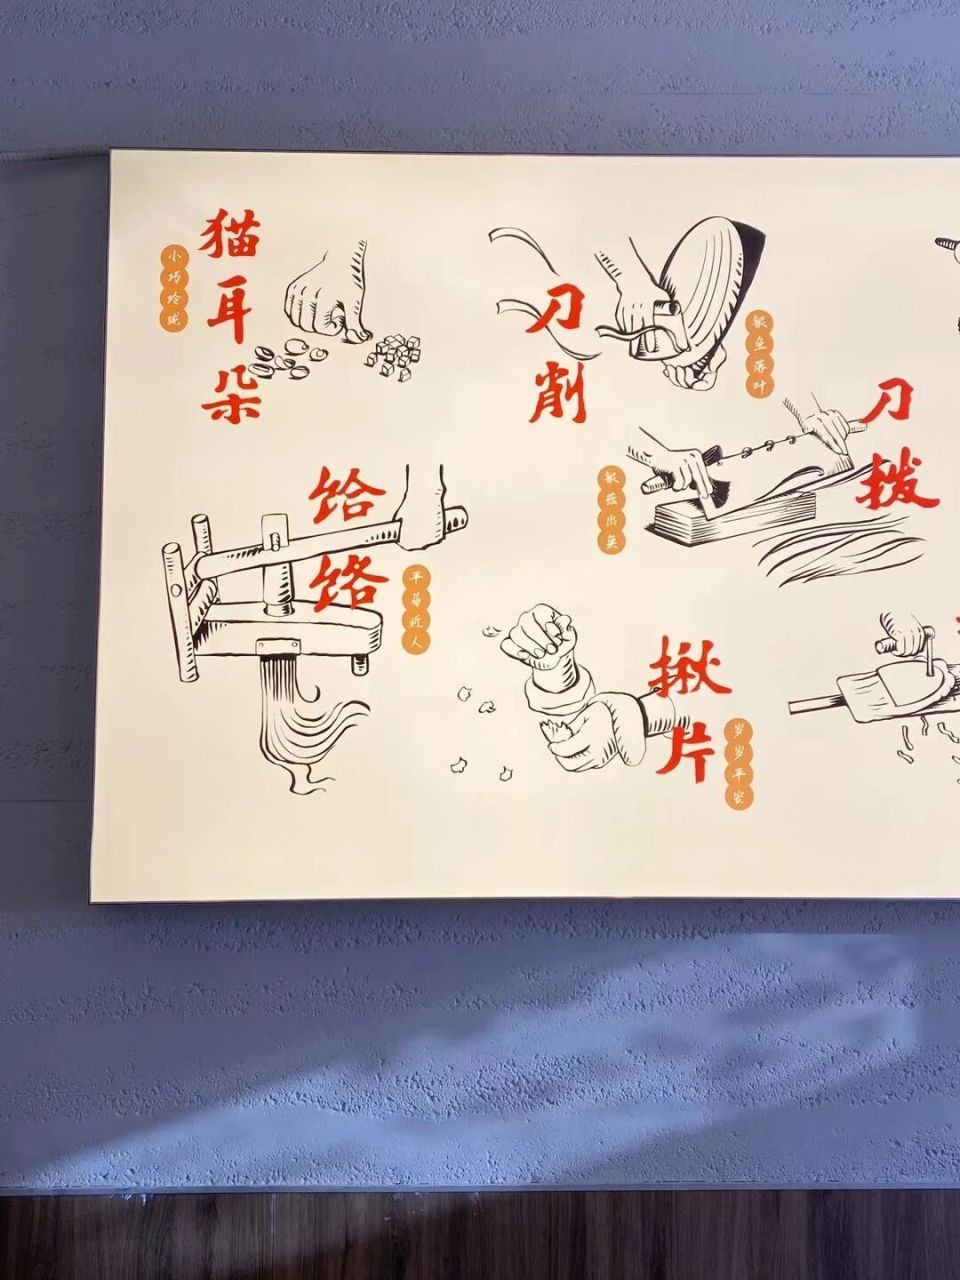 猫耳朵
小巧玲珑
刀削
银鱼落叶
刀拨
银丝出巢
饸饹
平易近人
揪片
岁岁平安